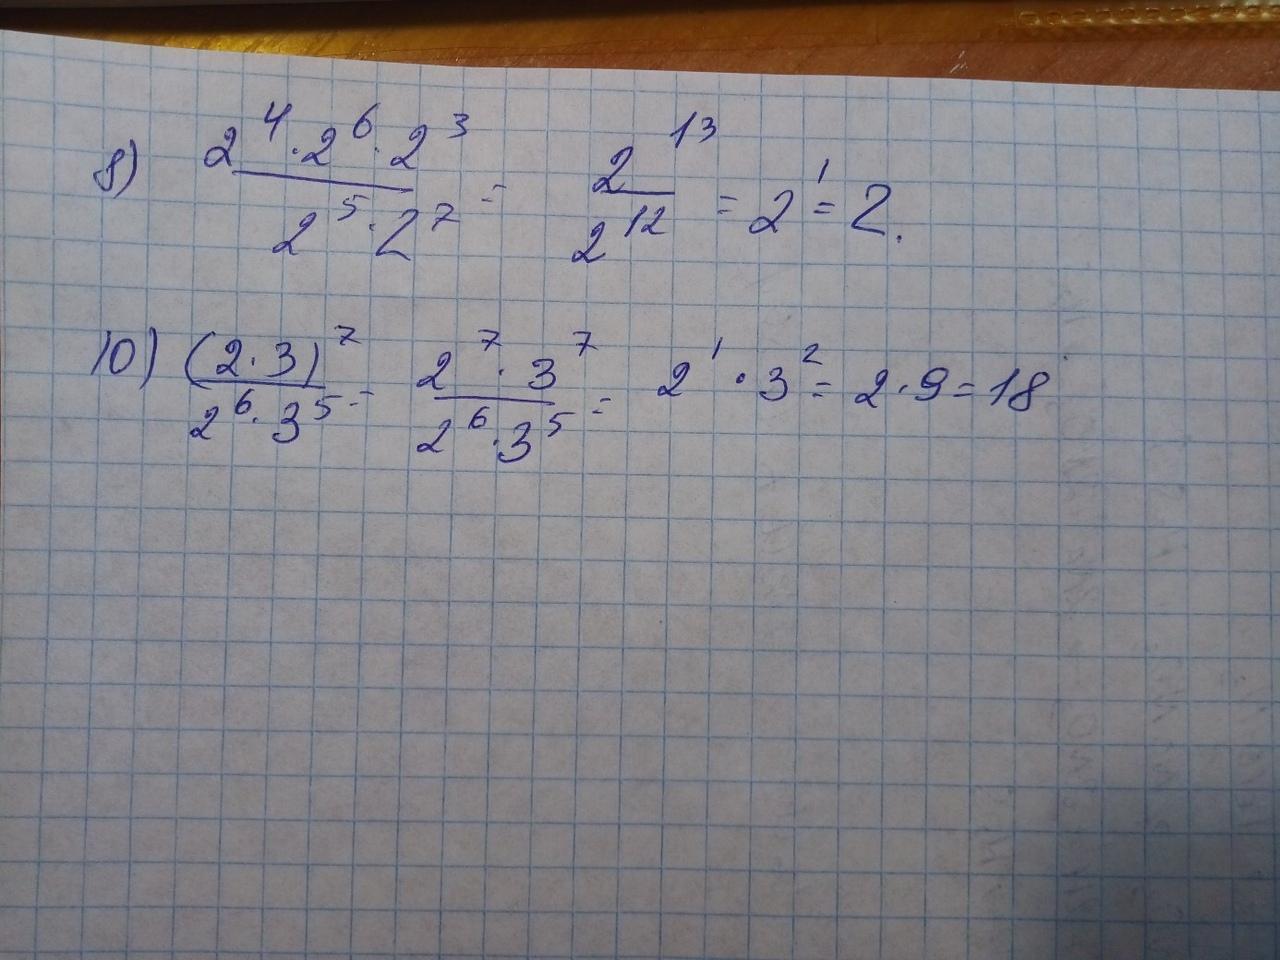 8) (2⁴·2⁶·2³)/(2⁵·2⁷) = 2¹³/2¹² = 2¹ = 2.
10) (2·3)⁷/(2⁶·3⁵) = (2⁷·3⁷)/(2⁶·3⁵) = 2¹·3² = 2·9 = 18